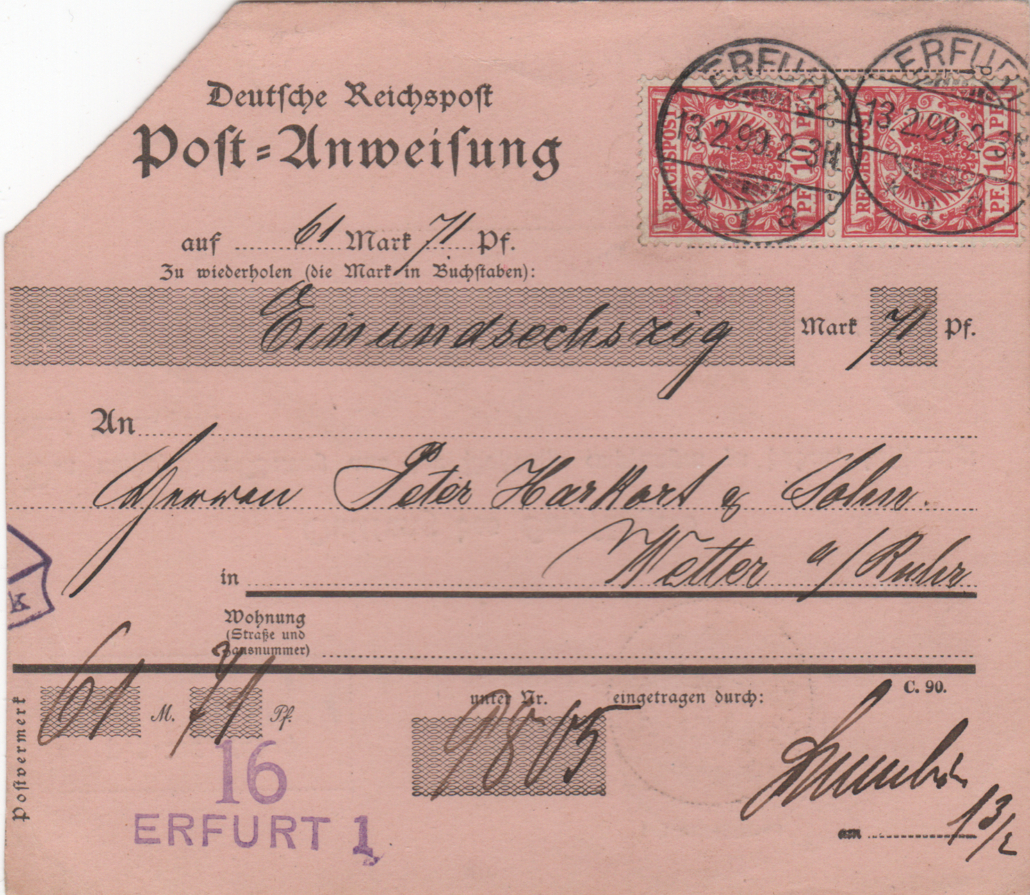 Deutsche Reichspost
Post-Anweisung
ERFURT
13.2.99.2-3N.
* 1 a
ERFURT
13.2.99.2-3N.
REICHSPOST
10
PF.
REICHSPOST
10
PF.
auf 61 Mark 71 Pf.
Zu wiederholen (die Mark in Buchstaben):
Einundsechszig Mark 71 Pf.
An
Herren Peter Harkort & Sohn.
in Wetter a/Ruhr
Wohnung
(Straße und
Hausnummer)
k
C. 90.
Postvermerk
61 M. 71 Pf.
unter Nr. 9805 eingetragen durch:
16
ERFURT 1
am 13/2